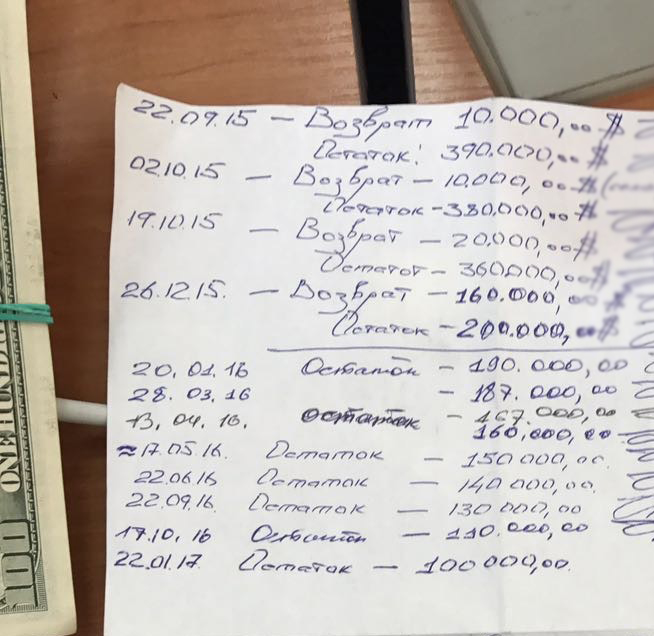 22.09.15 — Возврат 10.000,00 $
Остаток: 390.000,00 $
02.10.15 — Возврат — 10.000,00 $
Остаток - 380,000,00 $
19.10.15 — Возврат — 20.000,00 $
Остатот — 360.000,00 $
26.12.15. — Возврат - 160.000,00
Остаток - 200.000,00 $
20.01.16 Остаток - 190.000,00
28.03.16 - 187.000,00
13.04.16. остаток - 167.000,00
160,000,00
≈17.05.16. Остаток — 150 000,00.
22.06.16 Остаток — 140 000,00.
22.09.16. Остаток — 130 000,00
17.10.16 Остаток — 110.000,00
22.01.17. Остаток — 100 000,00.
ONE HUND
100